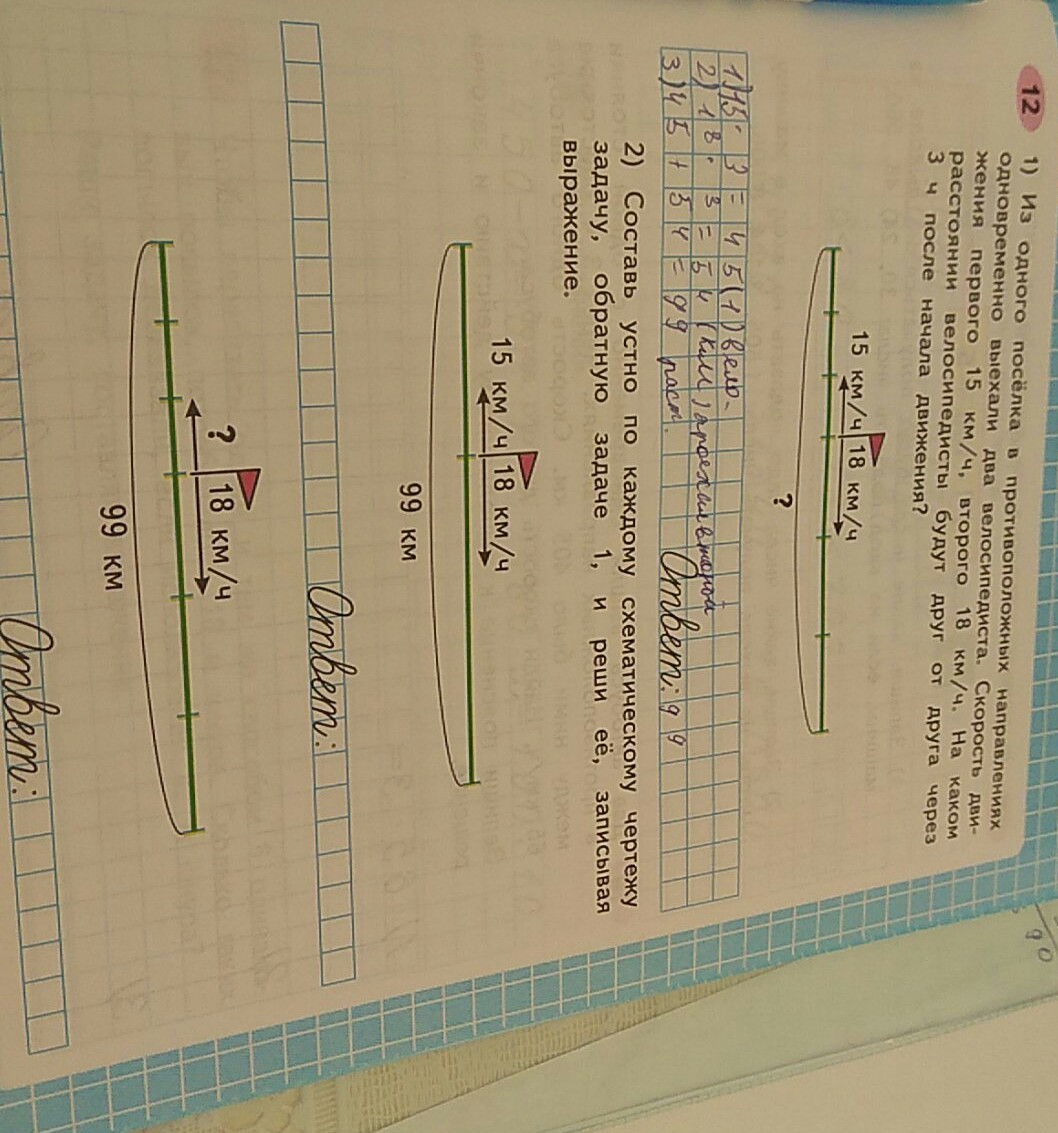 12
1) Из одного посёлка в противоположных направлениях
одновременно выехали два велосипедиста. Скорость дви-
жения первого 15 км/ч, второго 18 км/ч. На каком
расстоянии велосипедисты будут друг от друга через
3 ч после начала движения?
15 км/ч 18 км/ч
?
1) 15 · 3 = 45 (1) вело-
2) 18 · 3 = 54 (км) проехал второй
3) 45 + 54 = 99 раст.
Ответ: 99
2) Составь устно по каждому схематическому чертежу
задачу, обратную задаче 1, и реши её, записывая
выражение.
15 км/ч 18 км/ч
99 км
Ответ:
? 18 км/ч
99 км
Ответ:
90